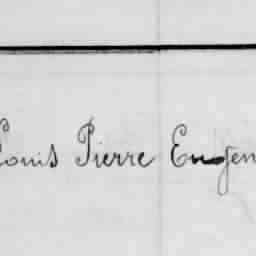 Louis Pierre Eugen